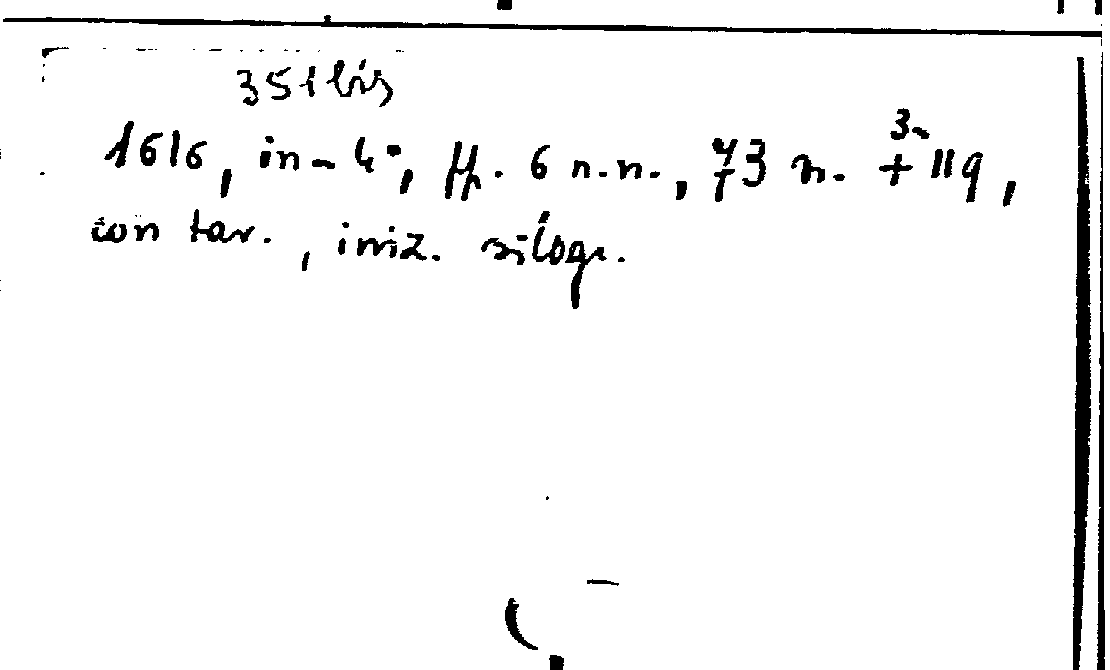 351 bis
1616, in-4°, ff. 6 n.n., 73 n. + 119,
con tav., iniz. silogr.